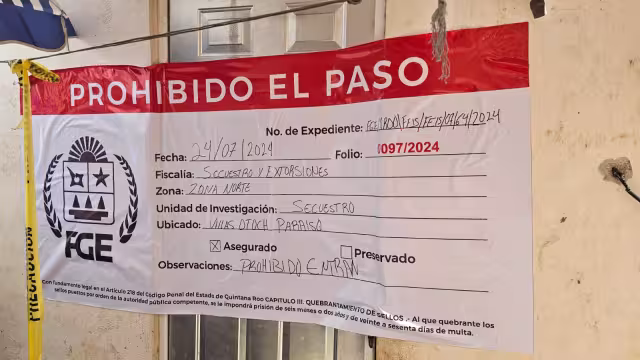 PROHIBIDO EL PASO
No. de Expediente: FGE/QROO/FEIS/FEIS/07/64/2024
Fecha: 24/07/2024 Folio: 0097/2024
Fiscalía: SECUESTRO Y EXTORSIONES
Zona: ZONA NORTE
Unidad de Investigación: SECUESTRO
Ubicado: VILLAS OTOCH PARAISO
☒ Asegurado ☐ Preservado
Observaciones: PROHIBIDO ENTRAR
FGE
Con fundamento legal en el Artículo 218 del Código Penal del Estado de Quintana Roo CAPITULO III. QUEBRANTAMIENTO DE SELLOS.- Al que quebrante los
sellos puestos por orden de la autoridad pública competente, se le impondrá prisión de seis meses a dos años y de veinte a sesenta días de multa.
PRECAUCION